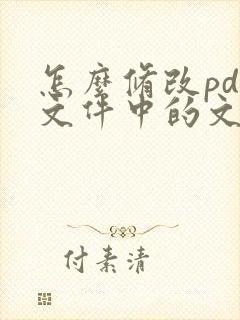 怎麼脩改pd
文件中的文
付素清